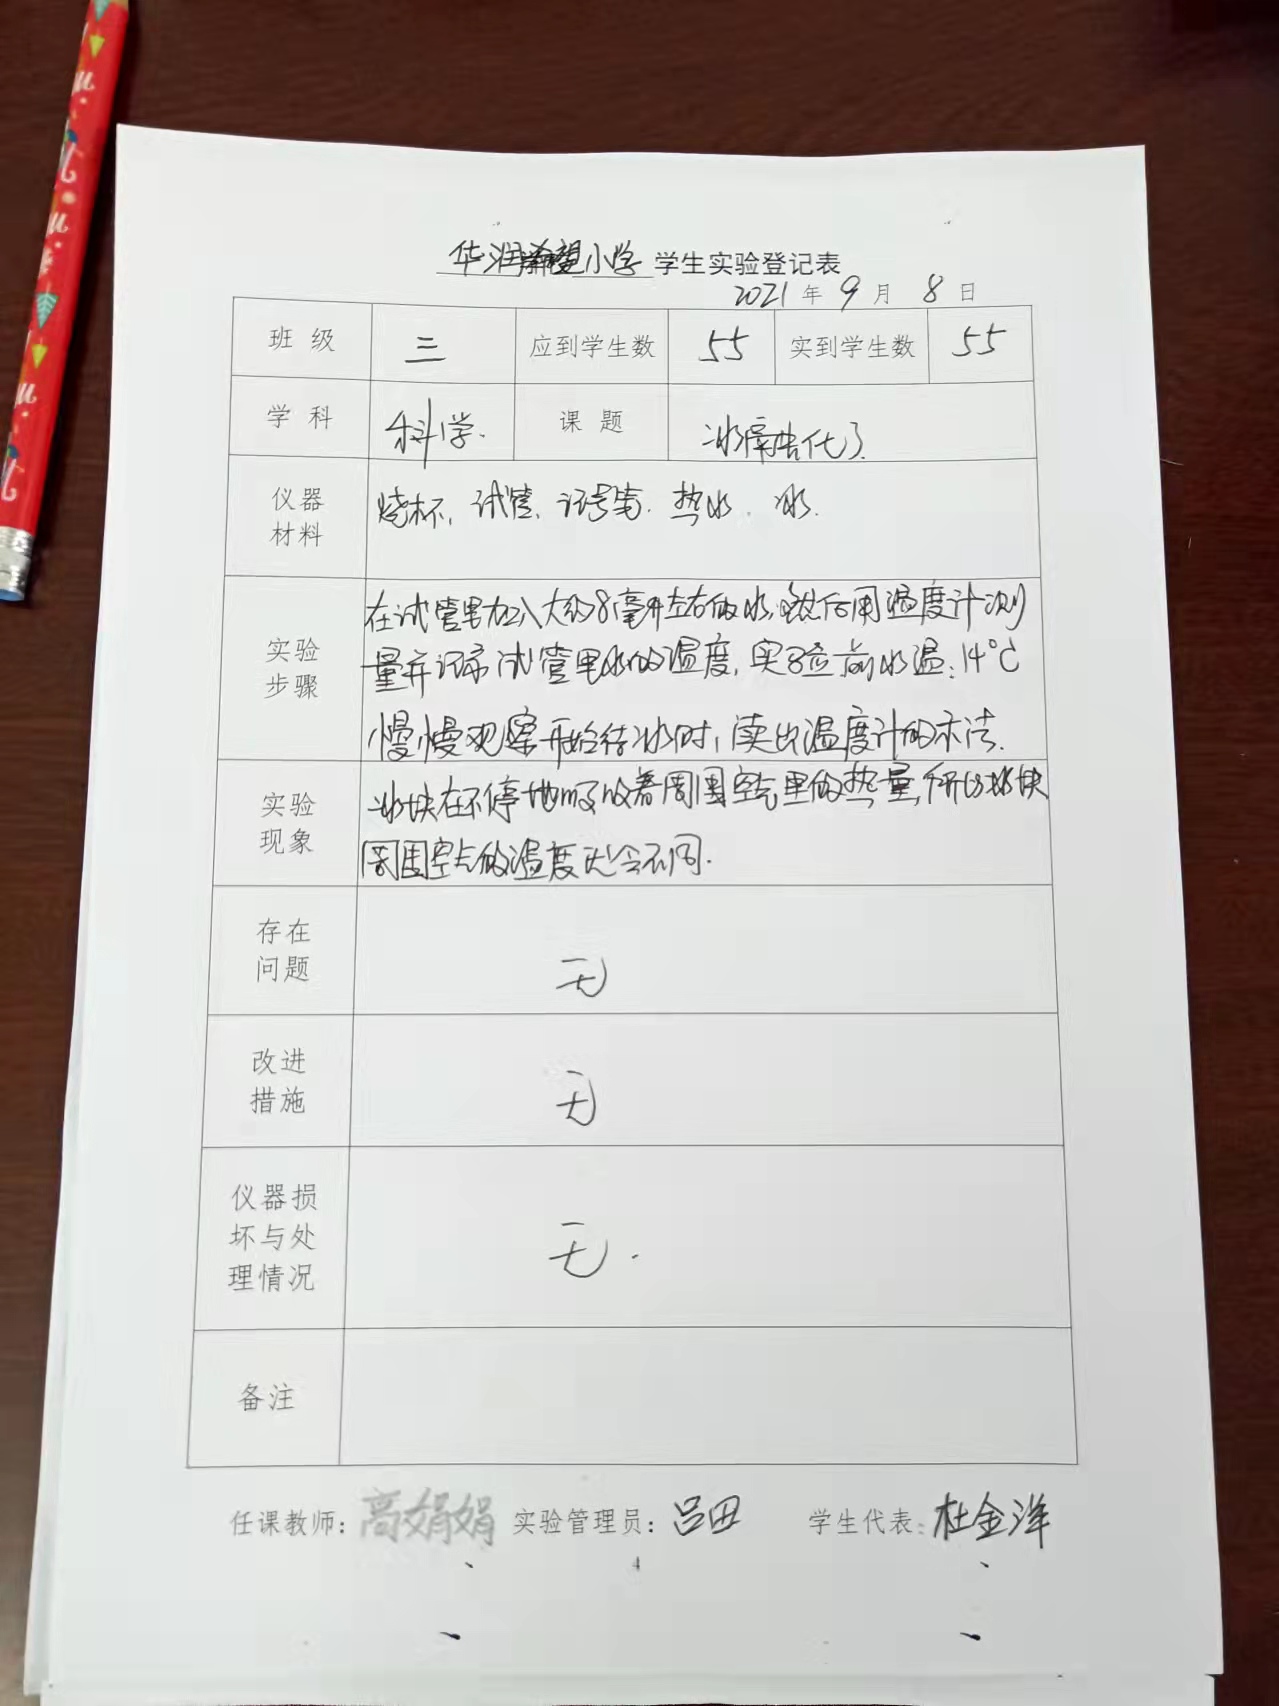 华润希望小学 学生实验登记表
2021年9月8日
班 级 三 应到学生数 55 实到学生数 55
学 科 科学. 课 题 冰融化了.
仪器
材料
烧杯、试管、记号笔、热水、冰.
实验
步骤
在试管里加入大约8毫升左右的水,然后用温度计测
量并记录试管里水的温度,实验前水温:14℃
慢慢观察开始结冰时,读出温度计的示法.
实验
现象
冰块在不停地吸收着周围空气里的热量,所以冰块
周围空气的温度也会不同.
存在
问题
无
改进
措施
无
仪器损
坏与处
理情况
无.
备注
任课教师:高娟娟 实验管理员:吕田 学生代表:杜金洋
4